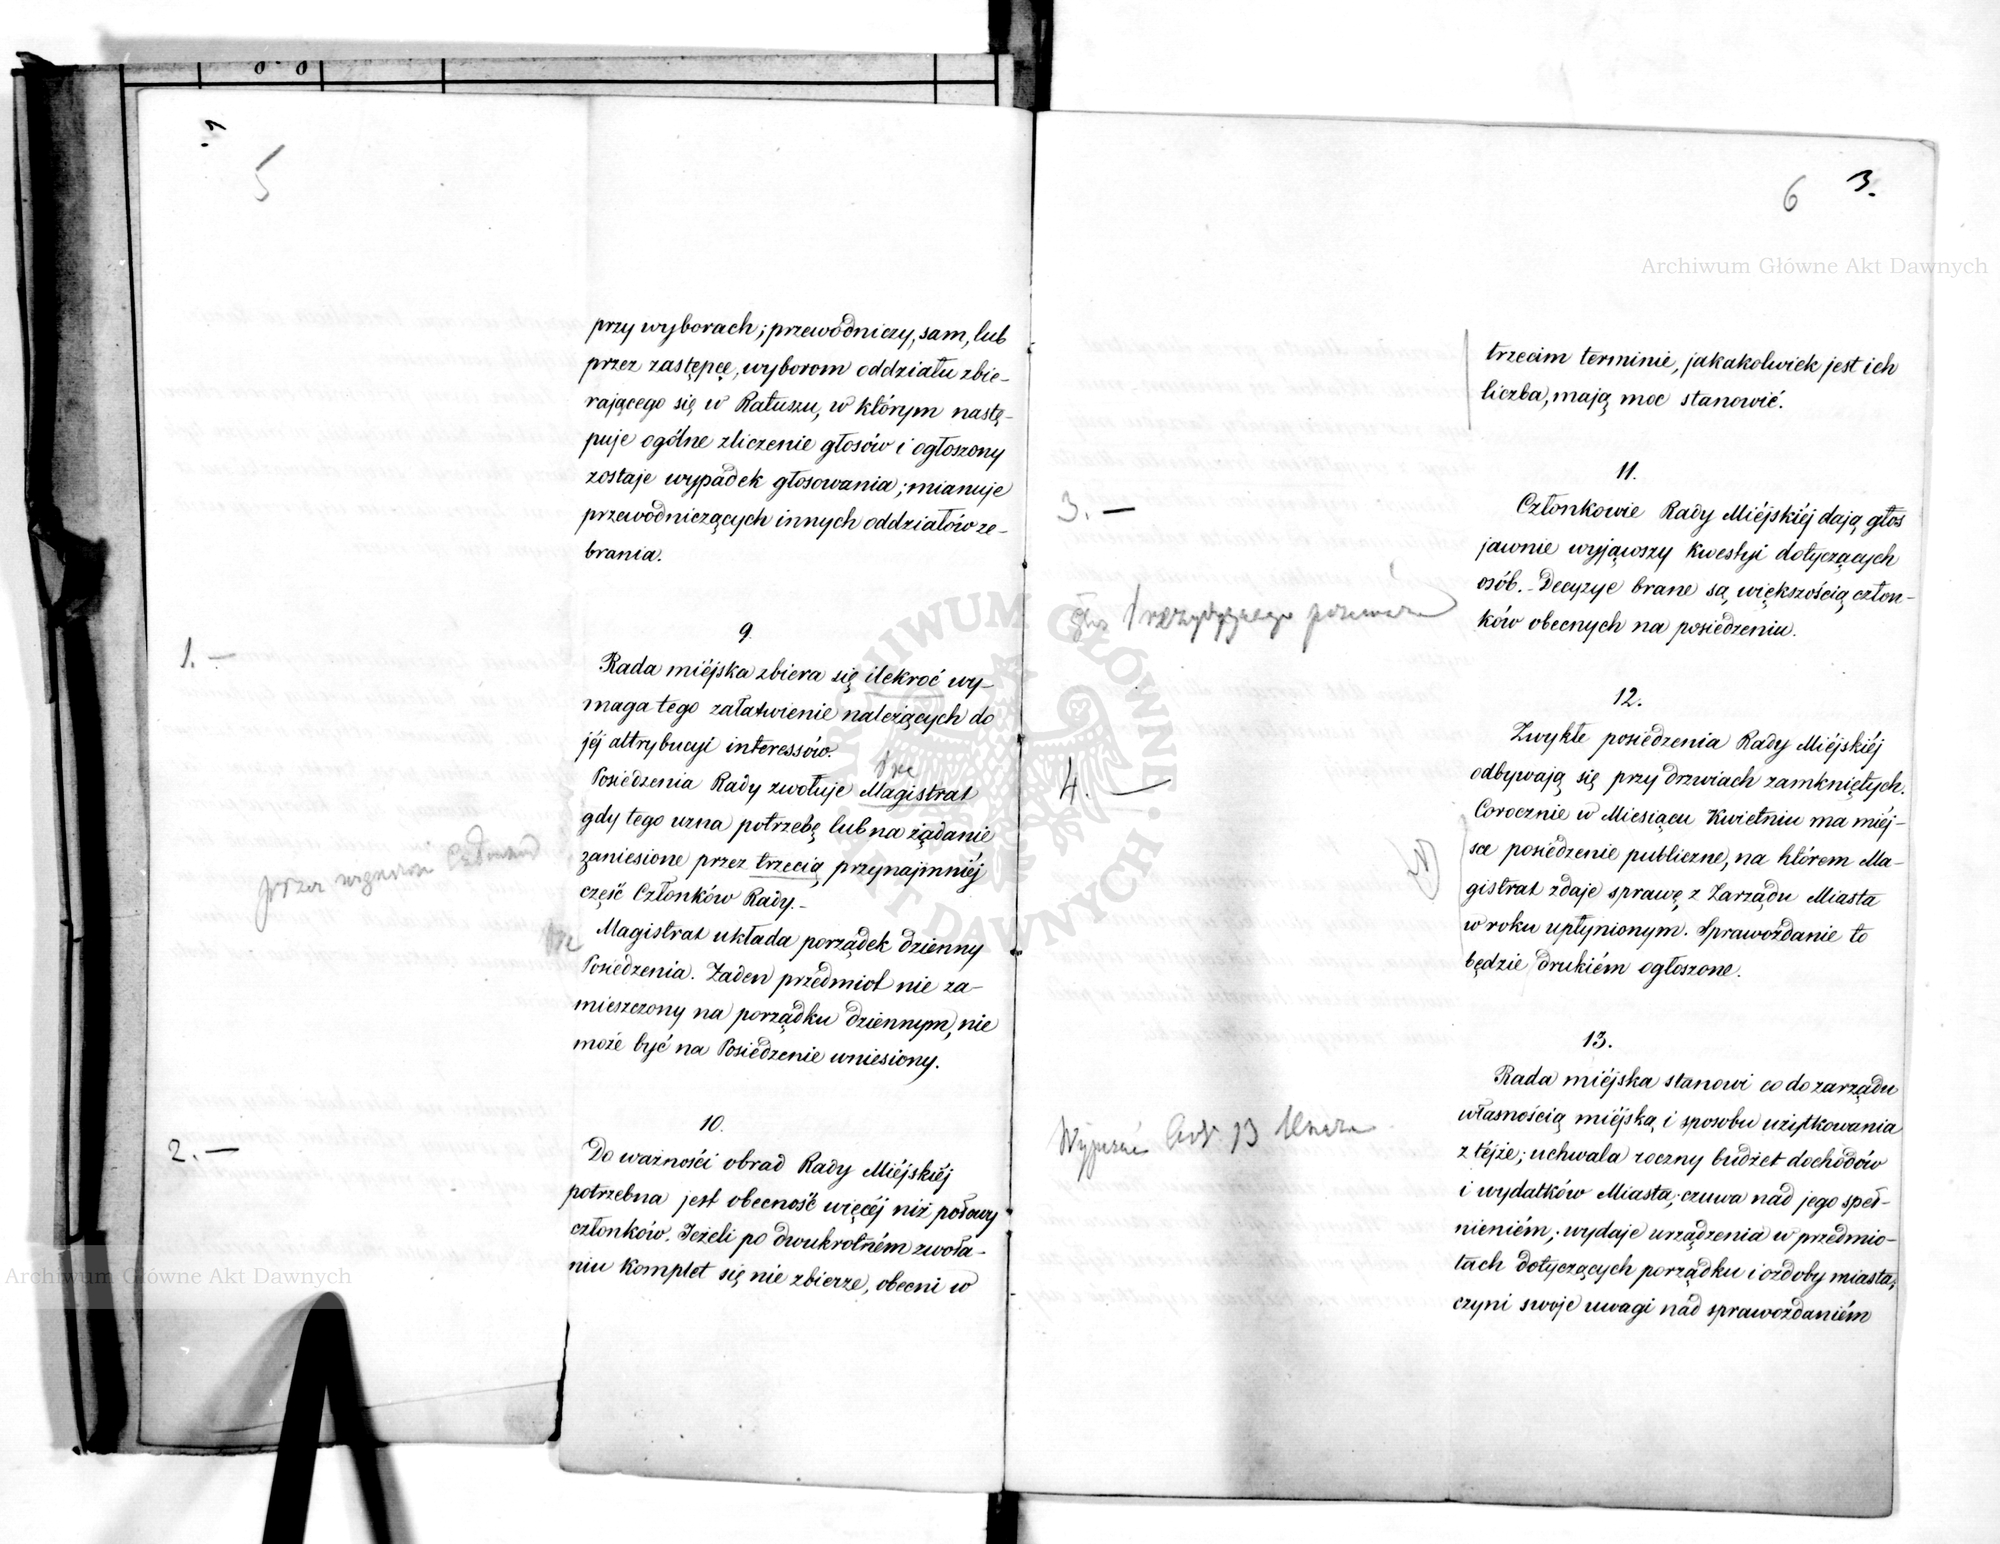 5
przy wyborach; przewodniczy, sam, lub
przez zastępcę, wyborom oddziału zbie-
rającego się w Ratuszu, w którym nastę-
puje ogólne zliczenie głosów i ogłoszony
zostaje wypadek głosowania; mianuje
przewodniczących innych oddziałów ze-
brania.
9.
1. —
Rada miéjska zbiera się ilekroć wy-
maga tego załatwienie należących do
jéj attrybucyi interessów.
Posiedzenia Rady zwołuje Magistrat
gdy tego uzna potrzebę lub na żądanie
zaniesione przez trzecią przynajmniéj
część Członków Rady. -
Magistrat układa porządek dzienny
Posiedzenia. Żaden przedmiot nie za-
mieszczony na porządku dziennym, nie
może być na Posiedzenie wniesiony.
10.
2. —
Do ważności obrad Rady Miéjskiéj
potrzebna jest obecność więcéj niż połowy
członków. Jeżeli po dwukrotném zwoła-
niu komplet się nie zbierze, obecni w
6 3.
Archiwum Główne Akt Dawnych
trzecim terminie, jakakolwiek jest ich
liczba, mają moc stanowić.
11.
3. —
Członkowie Rady Miéjskiéj dają głos
jawnie wyjąwszy kwestyi dotyczących
osób. - Decyzye brane są większością człon-
ków obecnych na posiedzeniu.
12.
4. —
Zwykłe posiedzenia Rady Miéjskiéj
odbywają się przy drzwiach zamkniętych.
Corocznie w Miesiącu Kwietniu ma miéj-
sce posiedzenie publiczne, na którem Ma-
gistrat zdaje sprawę z Zarządu Miasta
w roku upłynionym. Sprawozdanie to
będzie drukiém ogłoszone.
13.
Rada miéjska stanowi co do zarządu
własnością miéjską i sposobu użytkowania
z téjże; uchwala roczny budżet dochodów
i wydatków Miasta; czuwa nad jego speł-
nieniém; wydaje urządzenia w przedmio-
tach dotyczących porządku i ozdoby miasta;
czyni swoje uwagi nad sprawozdaniém
ARCHIWUM GŁÓWNE AKT DAWNYCH
Archiwum Główne Akt Dawnych